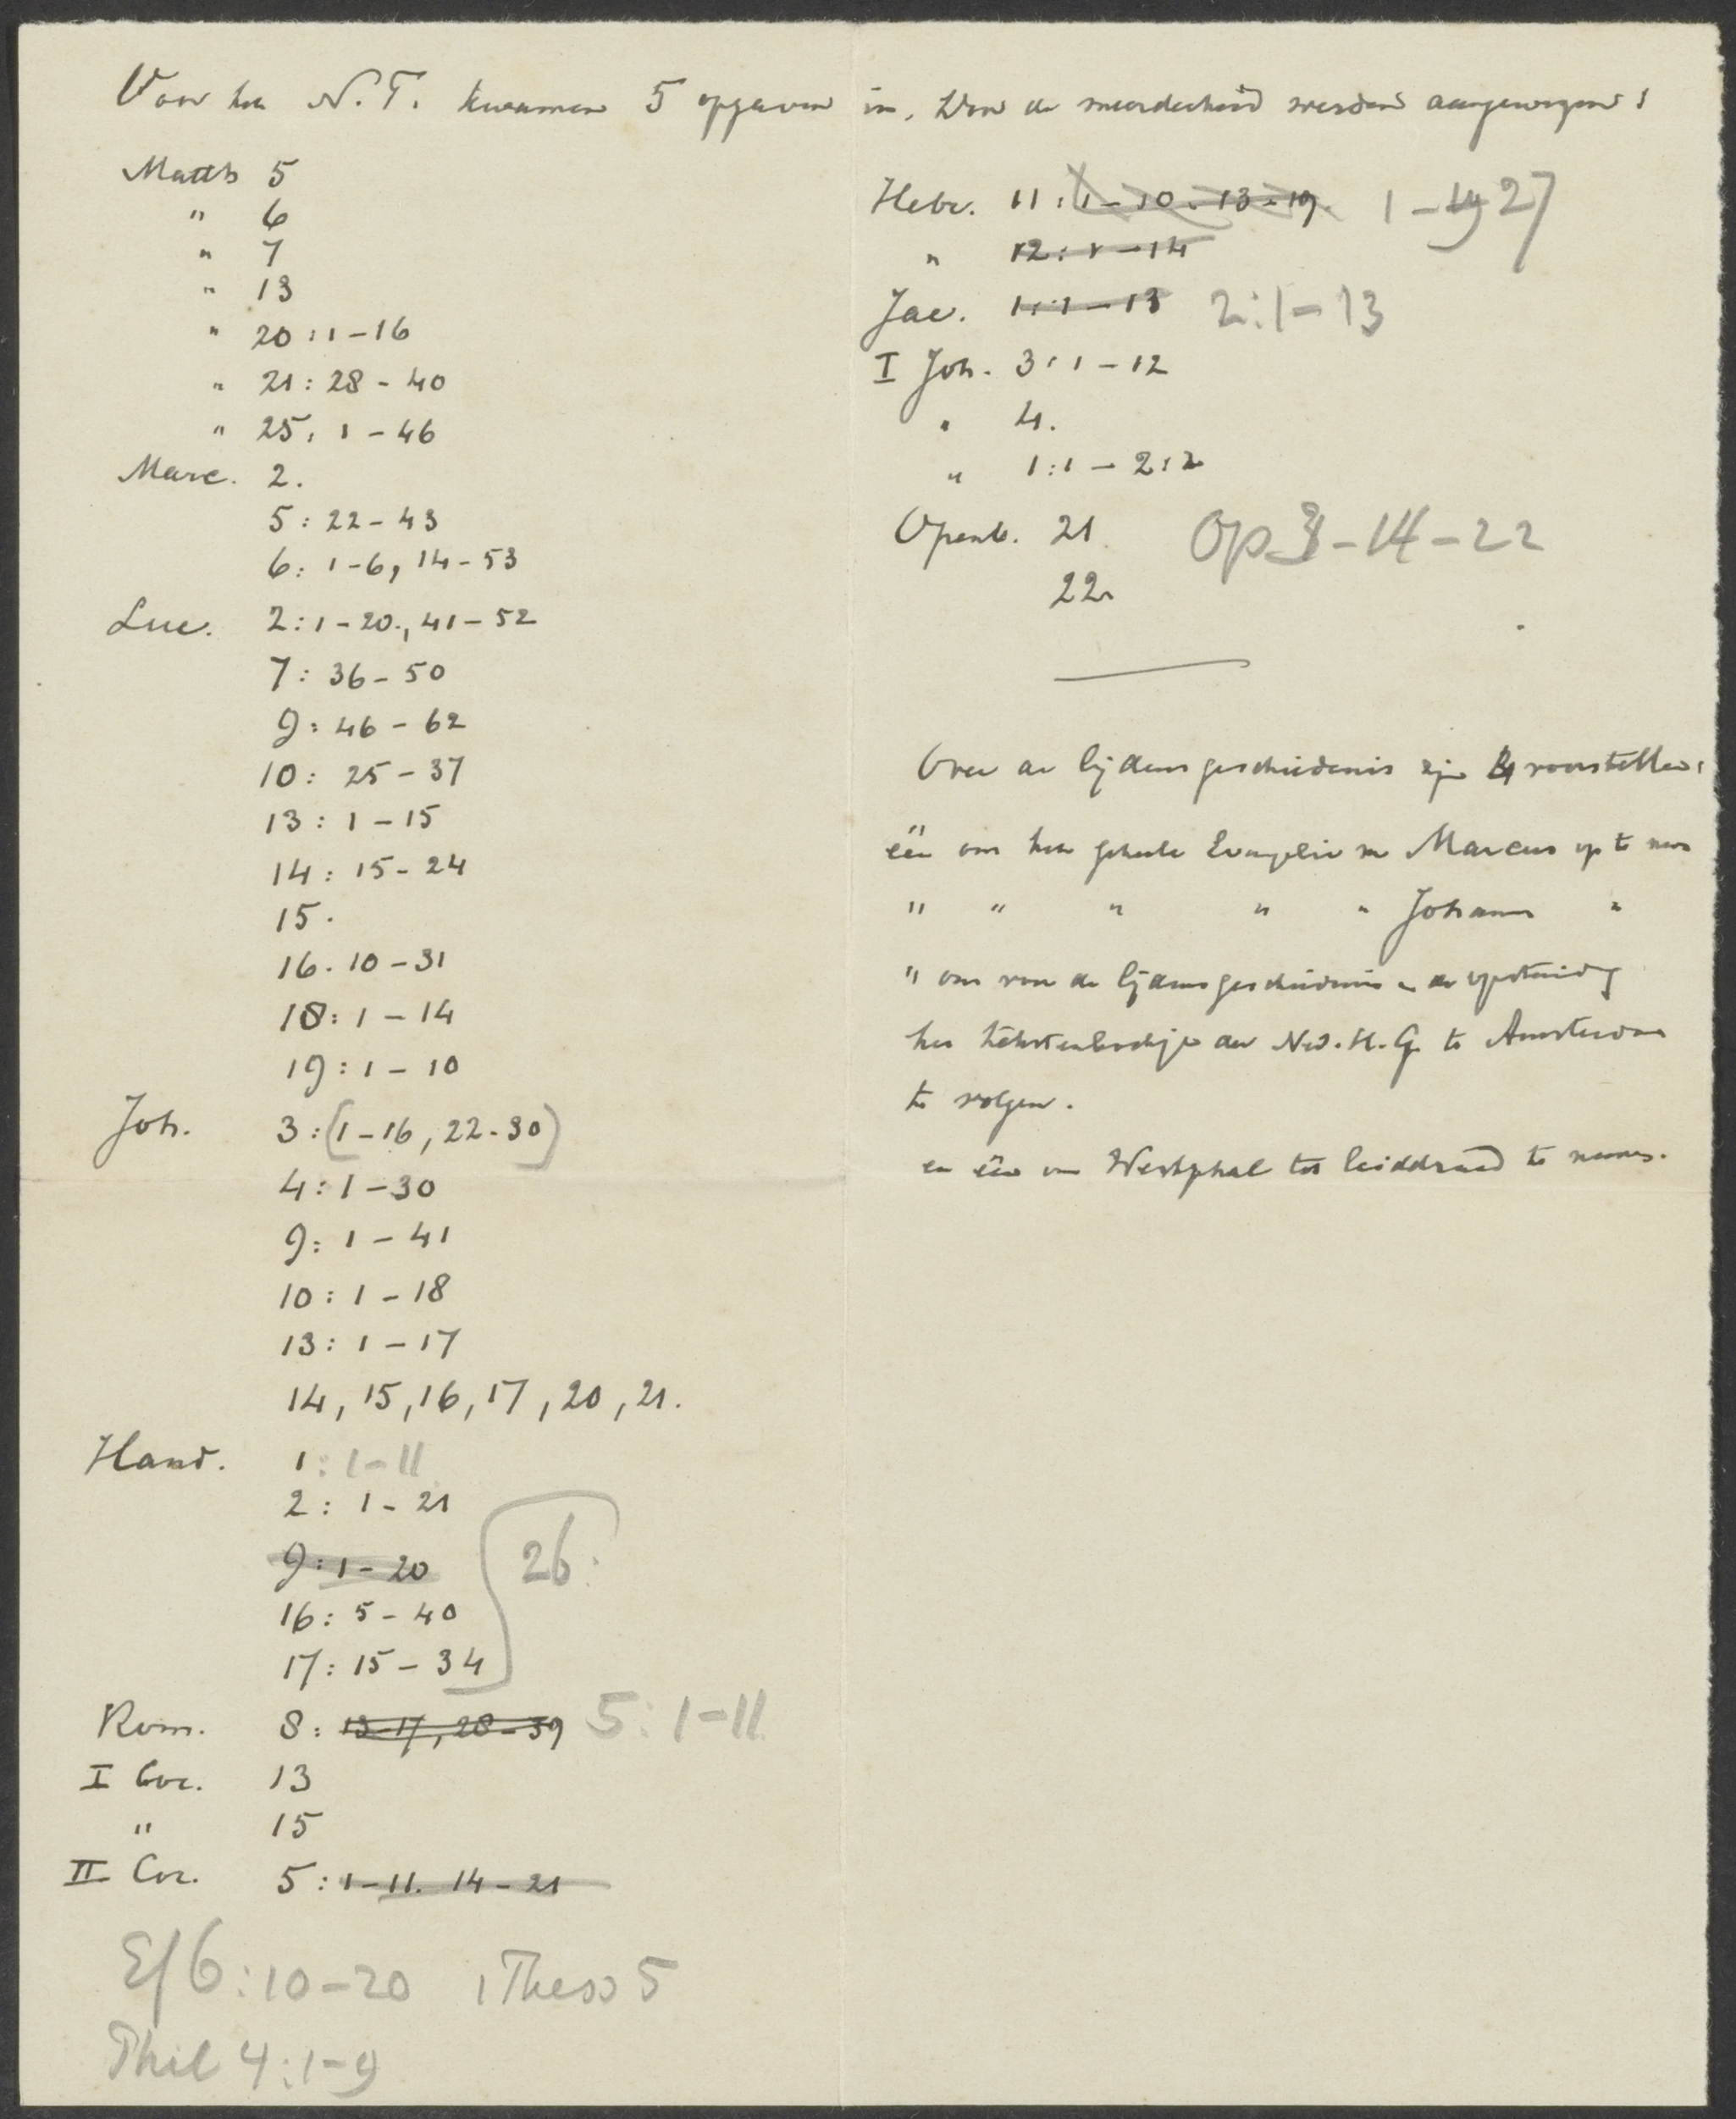 Voor het N.T. kwamen 5 opgaven in. Door de meerderheid werden aangewezen:
Matth 5
" 6
" 7
" 13
" 20:1-16
" 21:28-40
" 25:1-46
Marc. 2.
5:22-43
6:1-6, 14-53
Luc. 2:1-20., 41-52
7:36-50
9:46-62
10:25-37
13:1-15
14:15-24
15.
16.10-31
18:1-14
19:1-10
Joh. 3:(1-16, 22-30)
4:1-30
9:1-41
10:1-18
13:1-17
14, 15, 16, 17, 20, 21.
Hand. 1:1-11
2:1-21
9:1-20
26.
16:5-40
17:15-34
Rom. 8:13-17, 28-39 5:1-11
I Cor. 13
" 15
II Cor. 5:1-11. 14-21
Ef 6:10-20 1 Thess 5
Phil 4:1-9
Hebr. 11:1-10. 13-19. 1-19 27
" 12:1-14
Jac. 1:1-13 2:1-13
I Joh. 3:1-12
" 4.
" 1:1-2:2
Openb. 21. Op 3-14-22
22.
Over de lijdensgeschiedenis zijn 4 voorstellen:
één om het geheele Evangelie v. Marcus op te nemen
" " " " " Johannes "
" om voor de lijdensgeschiedenis en de opstanding
het tekstenboekje der Ned. H. G. te Amsterdam
te volgen.
en één om Westphal tot leiddraad te nemen.